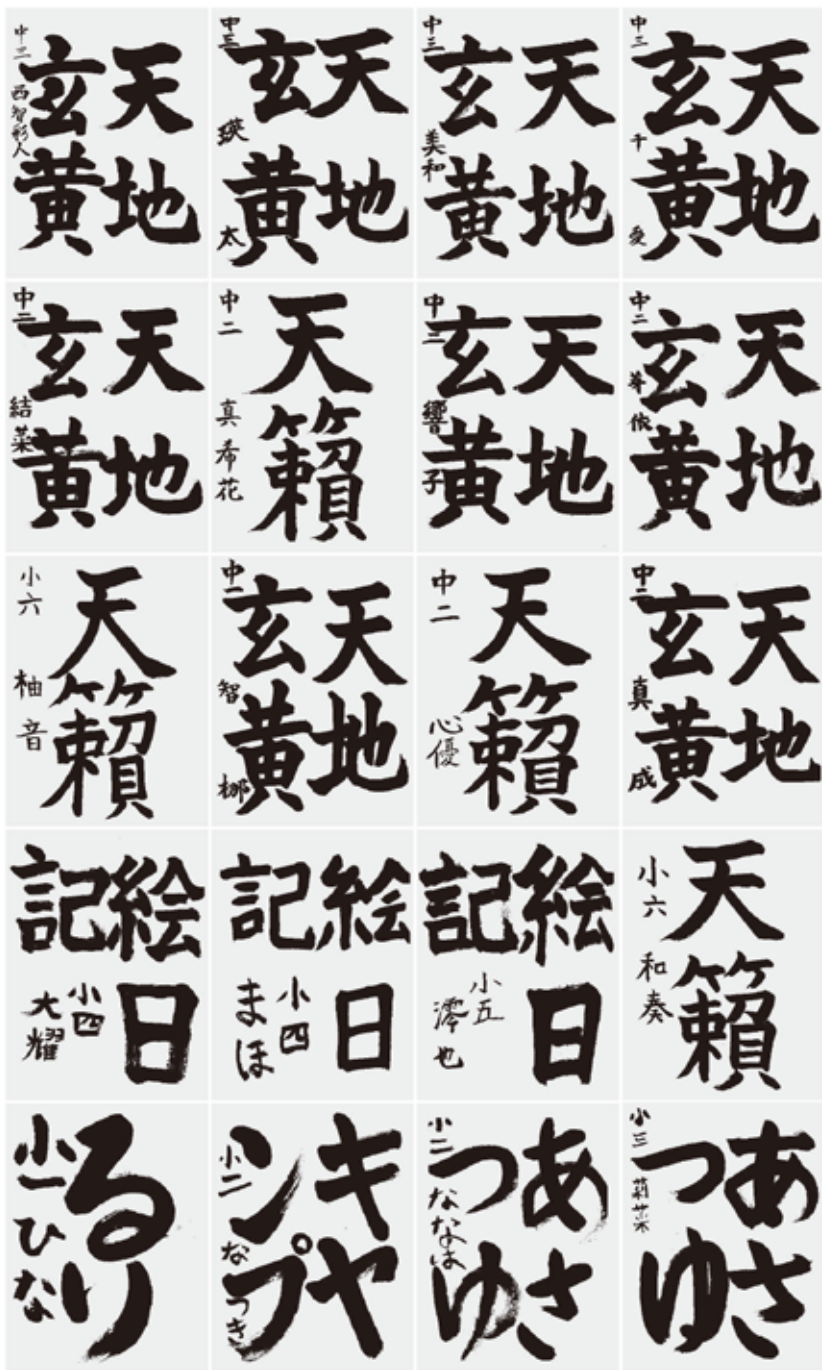 天地
玄黄
中三
西智彩人
天地
玄黄
中三
瑛太
天地
玄黄
中三
美和
天地
玄黄
中三
千愛
天地
玄黄
中二
結菜
天籟
中二
真希花
天地
玄黄
中二
響子
天地
玄黄
中二
芽依
天籟
小六
柚音
天地
玄黄
中一
智梛
天籟
中二
心優
天地
玄黄
中二
真成
絵日
記
小四
大耀
絵日
記
小四
まほ
絵日
記
小五
澪也
天籟
小六
和奏
るり
小一
ひな
キヤ
ンプ
小二
なつき
あさ
つゆ
小二
ななは
あさ
つゆ
小三
莉菜